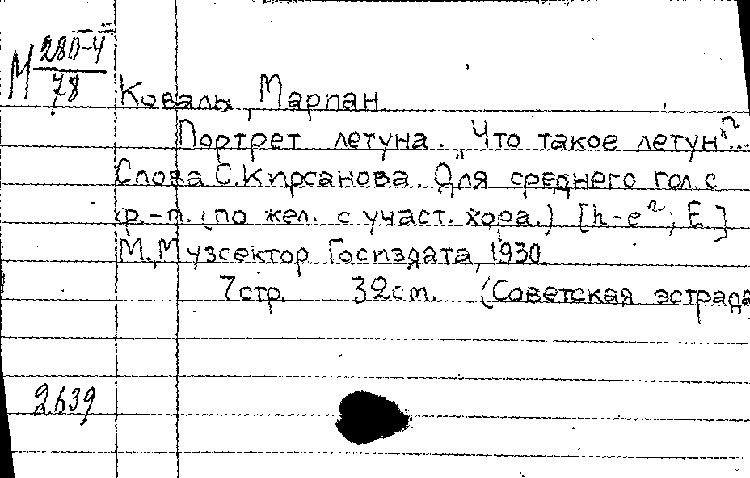 М 280-4
78
Коваль, Марпан
Портрет летуна. "Что такое летун"...
Слова С. Кирсанова. Для среднего гол. с
ф.-п. (по жел. с участ. хора.) [h-e²; E]
М., Музсектор Госиздата, 1930.
7 стр. 32 см. (Советская эстрада
2639